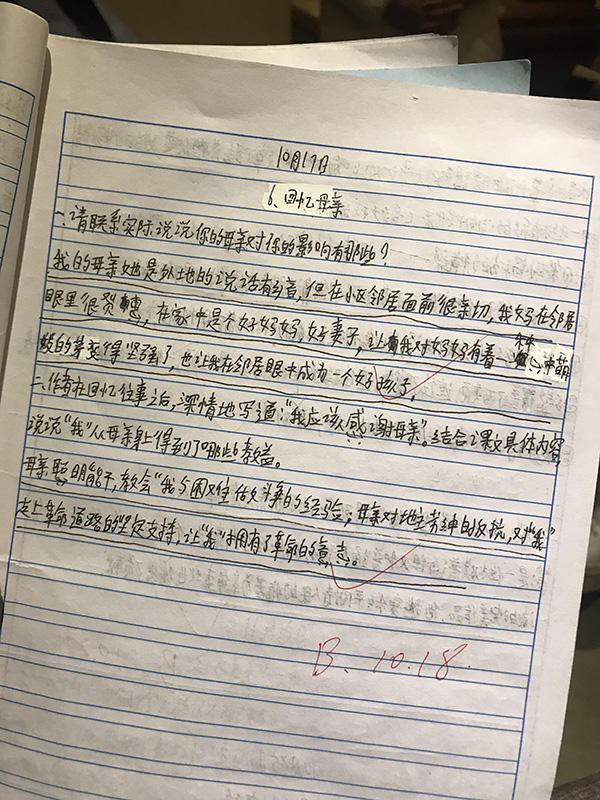 10月17日
6、回忆母亲
一、请联系实际说说你的母亲对你的影响有那些?
我的母亲她是外地的说话有乡音,但在小区邻居面前很亲切,我妈在邻居
眼里很,在家中是个好妈妈,好妻子,让我对妈妈有着一
的变得坚强了,也让我在邻居眼中成为一个好孩子。
二、作者在回忆往事之后,深情地写道:“我应该感谢母亲”。结合课文具体内容,
说说“我”从母亲身上得到了哪些教益。
母亲聪明能干,教会“我与困难作斗争的经验;母亲对地主的反抗,对“我”
走上革命道路的坚定支持,让“我”拥有了革命的意志。
B. 10.18.